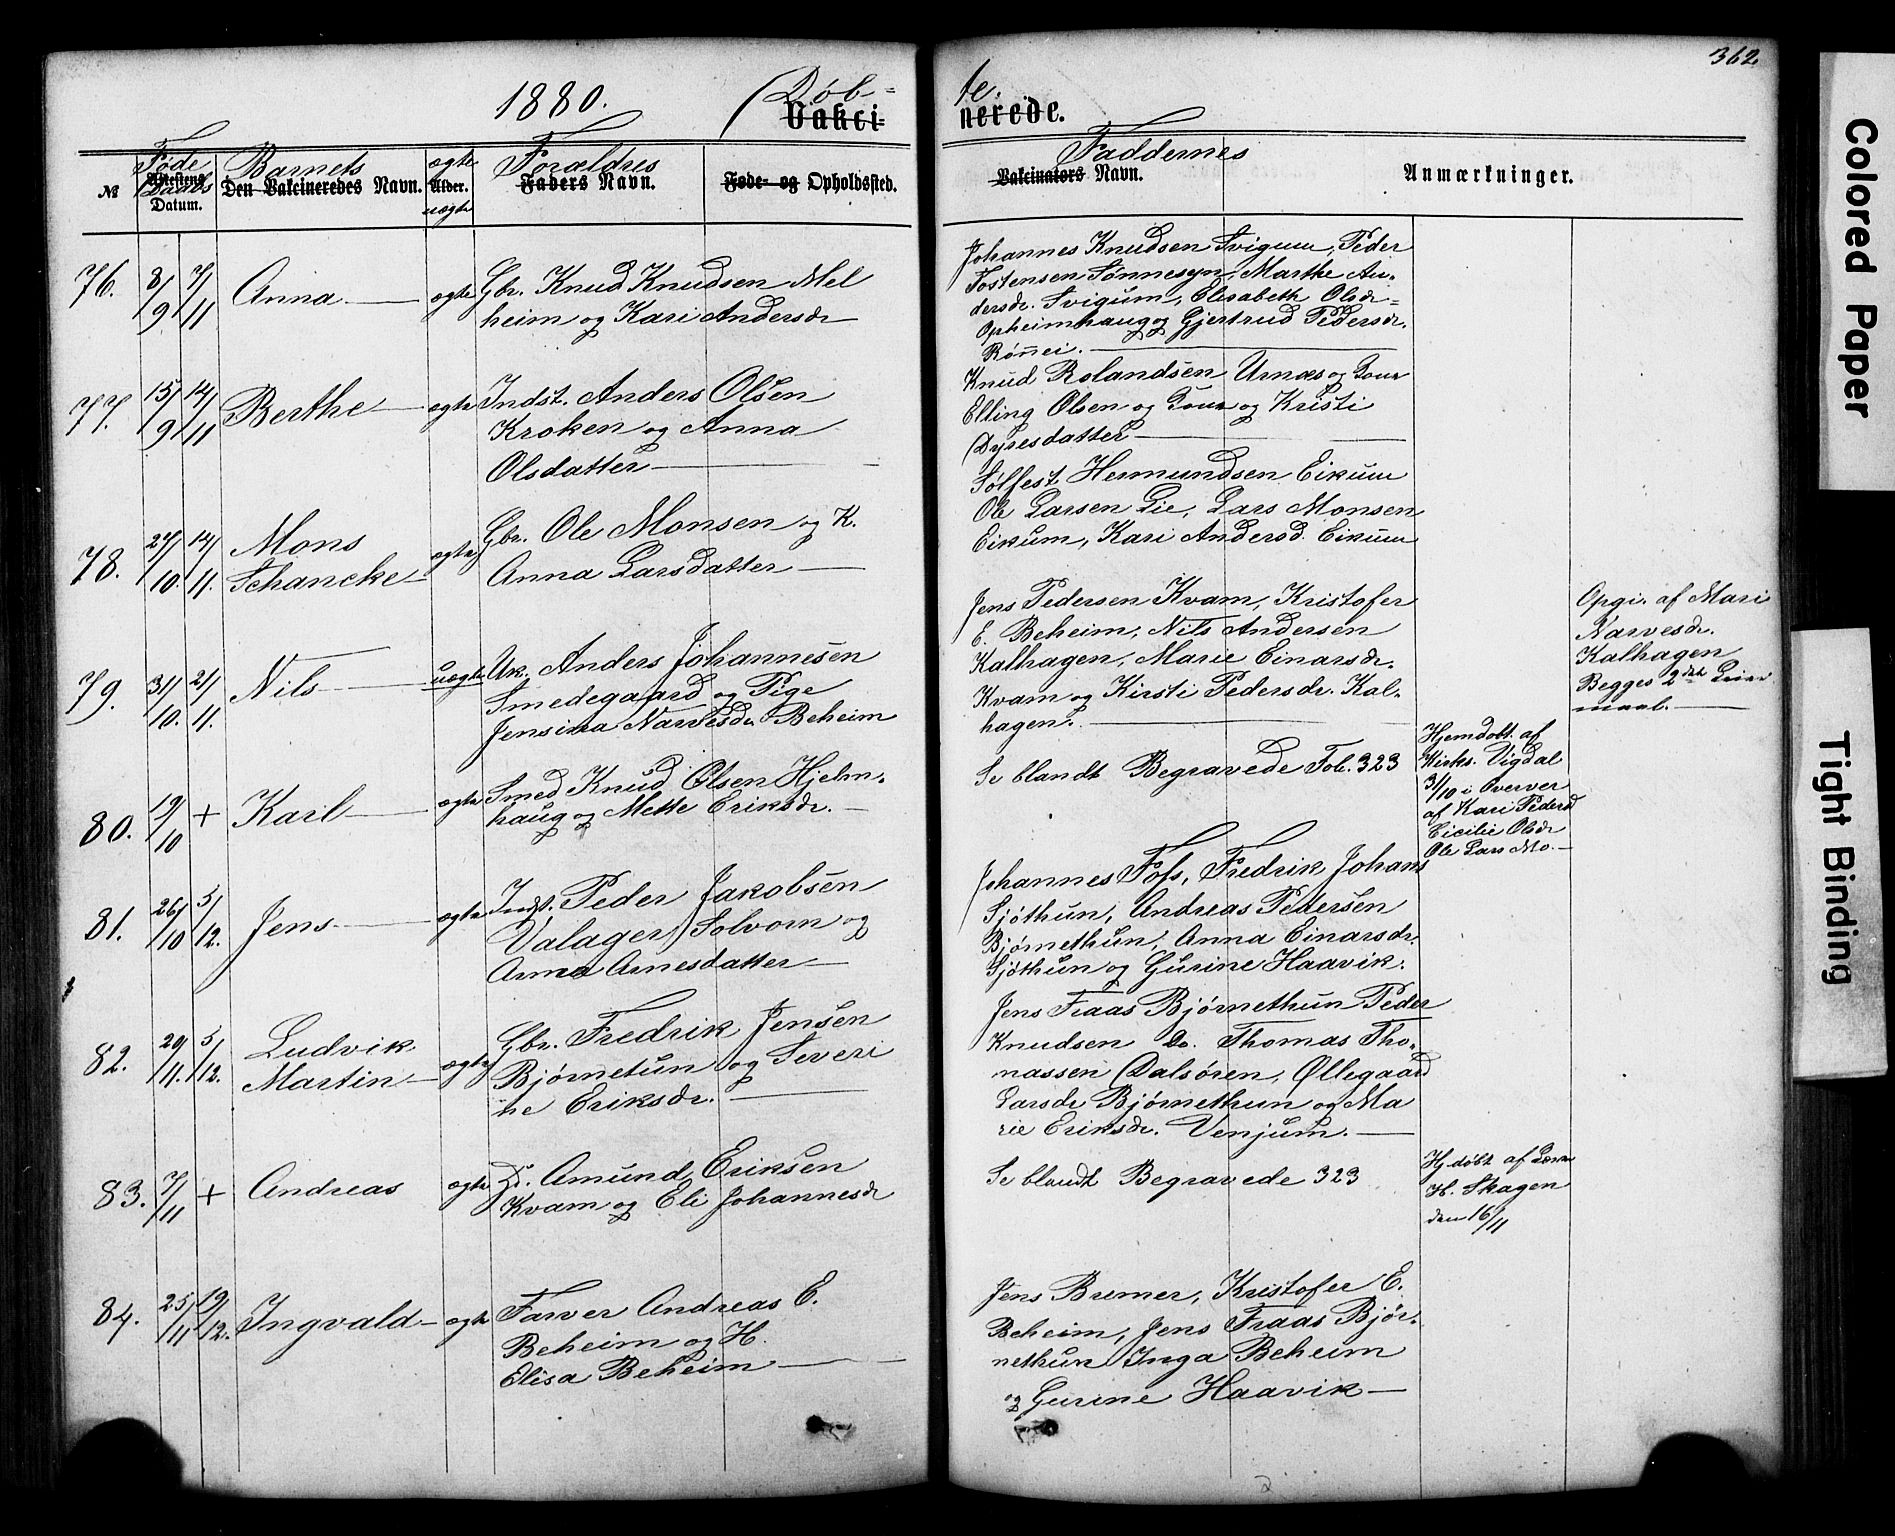 362
1880. Døb=
te.
Vakci=
nerede.
Føde Barnets ægte Forældres Faddernes
№ Attestens Daabs Den Vakcineredes Navn. Alder. Faders Navn. Føde- og Opholdssted. Vakcinators Navn. Anmærkninger.
Datum. uægte
76. 8/9 7/11 Anna ægte Gbr. Knud Knudsen Mel
heim og Kari Andersdr
Johannes Knudsen Svigum, Peder
Tostensen Sønnesyn, Marthe An-
dersdr. Svigum, Elisabeth Olsdr=
Opheimhaug og Gjertrud Pedersdr.
Rønnei.
77. 15/9 14/11 Berthe ægte Indst. Anders Olsen
Kroken og Anna
Olsdatter
Knud Rolandsen Urnæs og Kone
Elling Olsen og Kone og Kristi
Dyresdatter
78. 27/10. 14/11. Mons
Schancke ægte Gbr. Ole Monsen og K.
Anna Larsdatter
Sølfest Hermundsen Eikum
Ole Larsen Lie, Lars Monsen
Eikum, Kari Andersd. Eikum
79. 31/10. 21/11. Nils uægte Uk. Anders Johannesen
Smedegaard og Pige
Jensina Narvesdr. Beheim
Jens Pedersen Kvam, Kristofer
E. Beheim, Nils Andersen
Kalhagen, Marie Einarsdr.
Kvam og Kirsti Pedersdr. Kal-
hagen.
Opgi. af Mari
Narvesdr.
Kalhagen
Begges 2det Leier
maal.
80. 19/10 + Karl ægte Smed Knud Olsen Hjelm-
haug og Mette Eriksdr.
Se blandt Begravede Fol. 323
Hjemdøbt af
Kirks. Vigdal
31/10 i Overver
af Kari Pedersd
Cicilie Olsdr
Ole Lars Mo.
81. 26/10 5/12. Jens ægte Indst. Peder Jakobsen
Valager, Solvorn og
Anna Arnesdatter
Johannes Foss, Fredrik Johans
Sjøthun, Andreas Pedersen
Bjørnethun, Anna Einarsdr.
Sjøthun og Gurine Haavik.
82. 20/11. 5/12. Ludvik
Martin ægte Gbr. Fredrik Jensen
Bjørnetun og Severi
ne Eriksdr.
Jens Fraas Bjørnethun Peder
Knudsen Do. Thomas Tho-
massen Dalsøren, Øllegaard
Larsdr Bjørnethun og Ma
rie Eriksdr. Venjum.
83. 7/11 + Andreas ægte Amund Eriksen
Kvam og Eli Johannesdr
Se blandt Begravede 323
Hj. døbt af Lærer
H. Skagen
den 16/11
84. 25/11 19/12. Ingvald ægte Farver Andreas E.
Beheim og H.
Elisa Beheim
Jens Bremer, Kristofer E.
Beheim, Jens Fraas Bjør-
nethun Inga Beheim
og Gurine Haavik
Colored Paper
Tight Binding